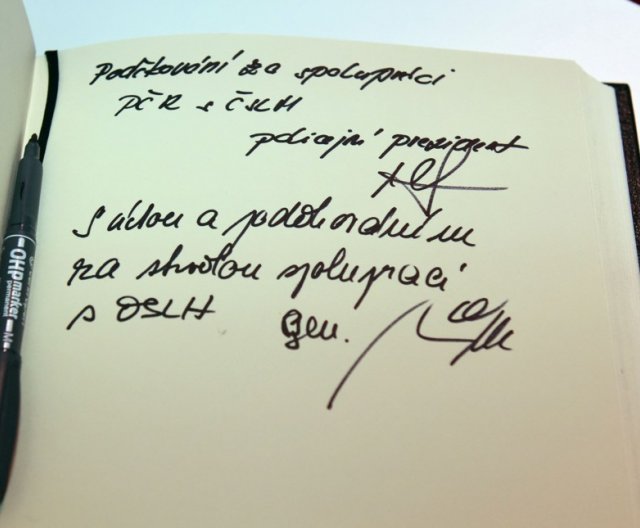 Poděkování za spolupráci
PČR s ČSLH
policejní prezident
S úctou a poděkováním
za skvělou spolupráci
s ČSLH gen.
OHP marker
permanent